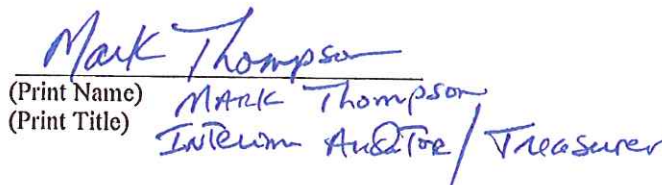 Mark Thompson
(Print Name) MARK Thompson
(Print Title) Interim Auditor / Treasurer